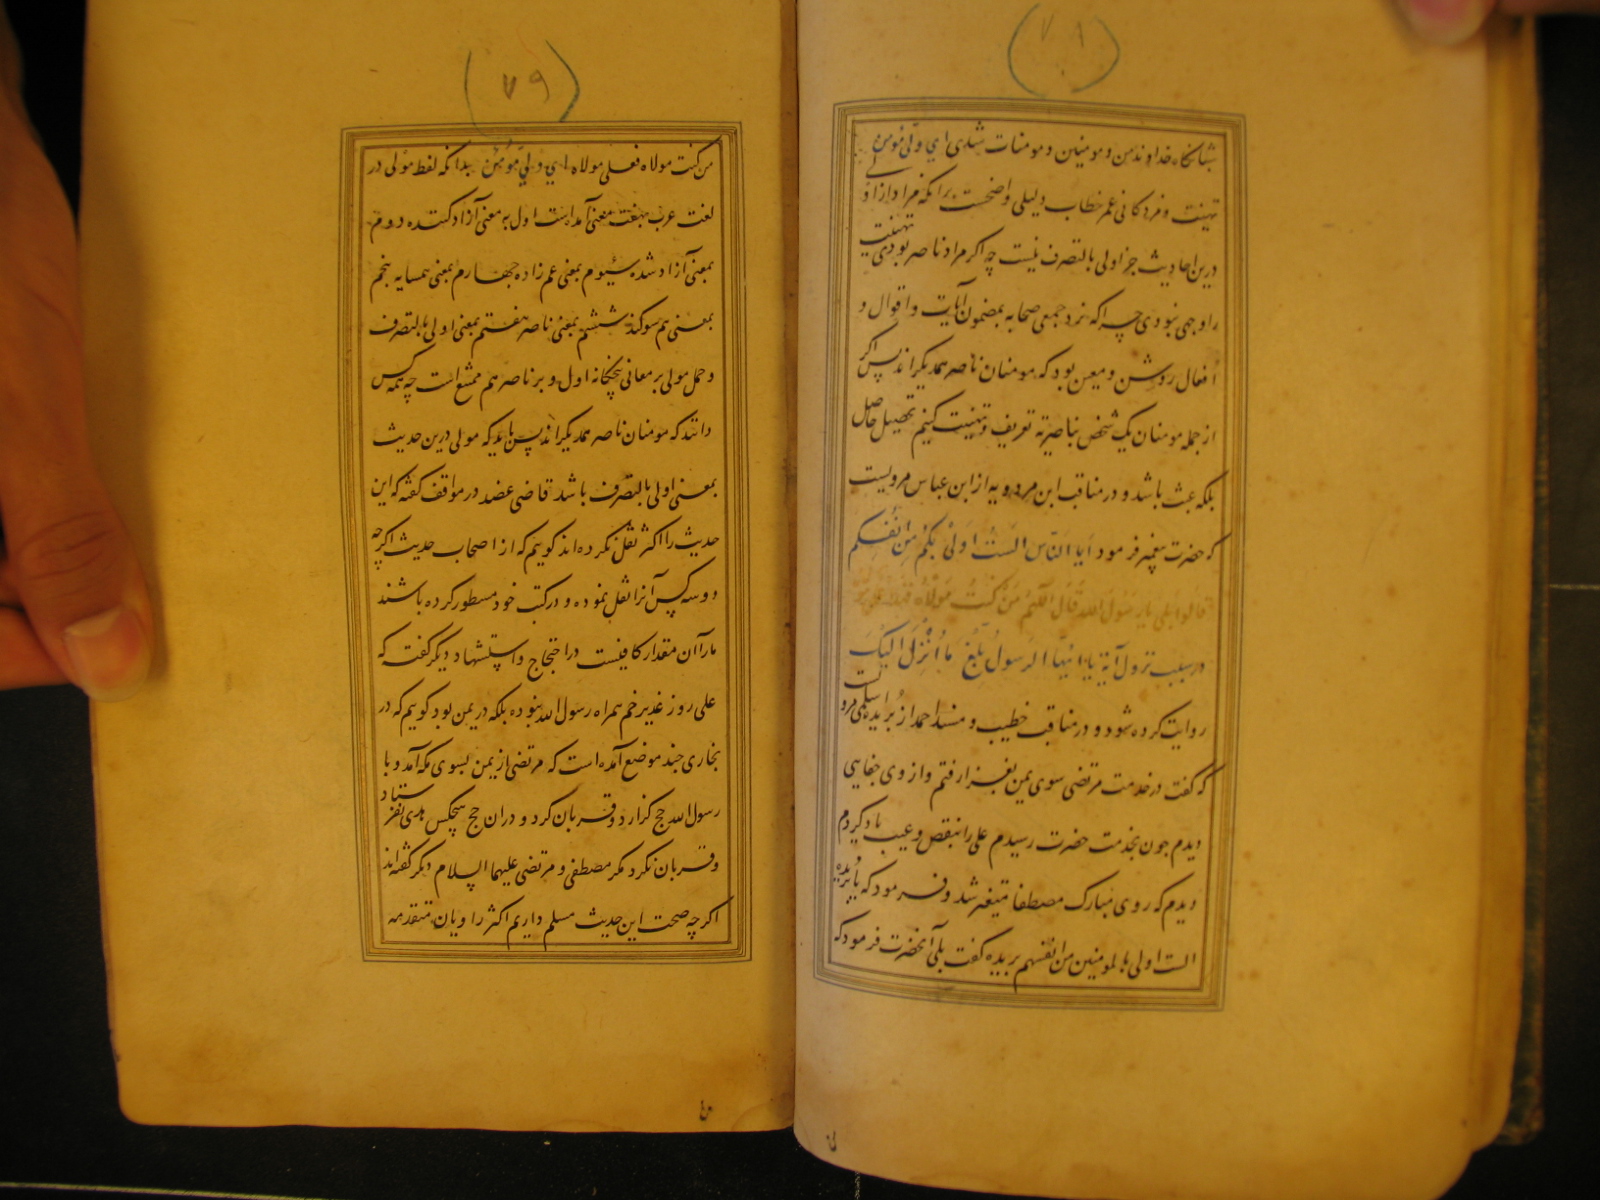 (٧٨)
شبانگاه خداوند من و مومنین و مومنات شدی ای ولی مومن
تهنیت و مژدگانی عم خطاب دلیلی واضحست برانکه مراد از او
درین احادیث جز اولی بالتصرف نیست چه اگر مراد ناصر بودی تهنیت
را وجهی نبودی چراکه نزد جمعی صحابه بمضمون آیات و اقوال و
افعال روشن و معین بود که مومنان ناصر همدیگراند پس اگر
از جمله مومنان یک شخص بناصریه تعریف و تهنیت کنیم تحصیل حاصل
بلکه عبث باشد و در مناقب ابن مردویه از ابن عباس مرویست
که حضرت پیغمبر فرمود ایها الناس الست اولی بکم من انفسکم
قالوا بلی یا رسول الله قال اللهم من کنت مولاه
در سبب نزول آیة یا ایها الرسول بلغ ما انزل الیک
روایت کرده شود و در مناقب خطیب و مسند احمد از بریده اسلمی مرویست
که گفت در خدمت مرتضی سوی یمن بغزا رفتم و از وی جفایی
دیدم جون بخدمت حضرت رسیدم علی را بنقص و عیب یاد کردم
دیدم که روی مبارک مصطفا متغیر شد و فرمود که یا بریده
الست اولی بالمومنین من انفسهم بریده گفت بلی آنحضرت فرمود که
(٧٩)
من کنت مولاه فعلی مولاه ای ولی مؤمن بدانکه لفظ مولی در
لغت عرب بهفت معنی آمداست اول به معنی آزاد کننده دوم
بمعنی آزاد شده سیوم بمعنی عم زاده جهارم بمعنی همسایه پنجم
بمعنی هم سوکند ششم بمعنی ناصر هفتم بمعنی اولی بالتصرف
و حمل مولی بر معانی پنجکانه اول و بر ناصر هم ممتنع است چه همه کس
دانند که مومنان ناصر همدیگراند پس باید که مولی درین حدیث
بمعنی اولی بالتصرف باشد قاضی عضد در مواقف گفته که این
حدیث را اکثر نقل نکرده اند کوییم که از اصحاب حدیث اگرچه
دو سه کس آنرا نقل نموده و در کتب خود مسطور کرده باشند
ما را آن مقدار کافیست در احتجاج و استشهاد دیگر گفت که
علی روز غدیر خم همراه رسول الله نبوده بلکه در یمن بود کوییم که در
بخاری چند موضع آمده است که مرتضی از یمن بسوی مکه آمد و با
رسول الله حج گزارد و قربان کرد و دران حج هیچکس هدی نفرستاد
و قربان نکرد مکر مصطفی و مرتضی علیهما السلام دیگر گفته اند
اکرچه صحت این حدیث مسلم داریم اکثر راویان متقدمه